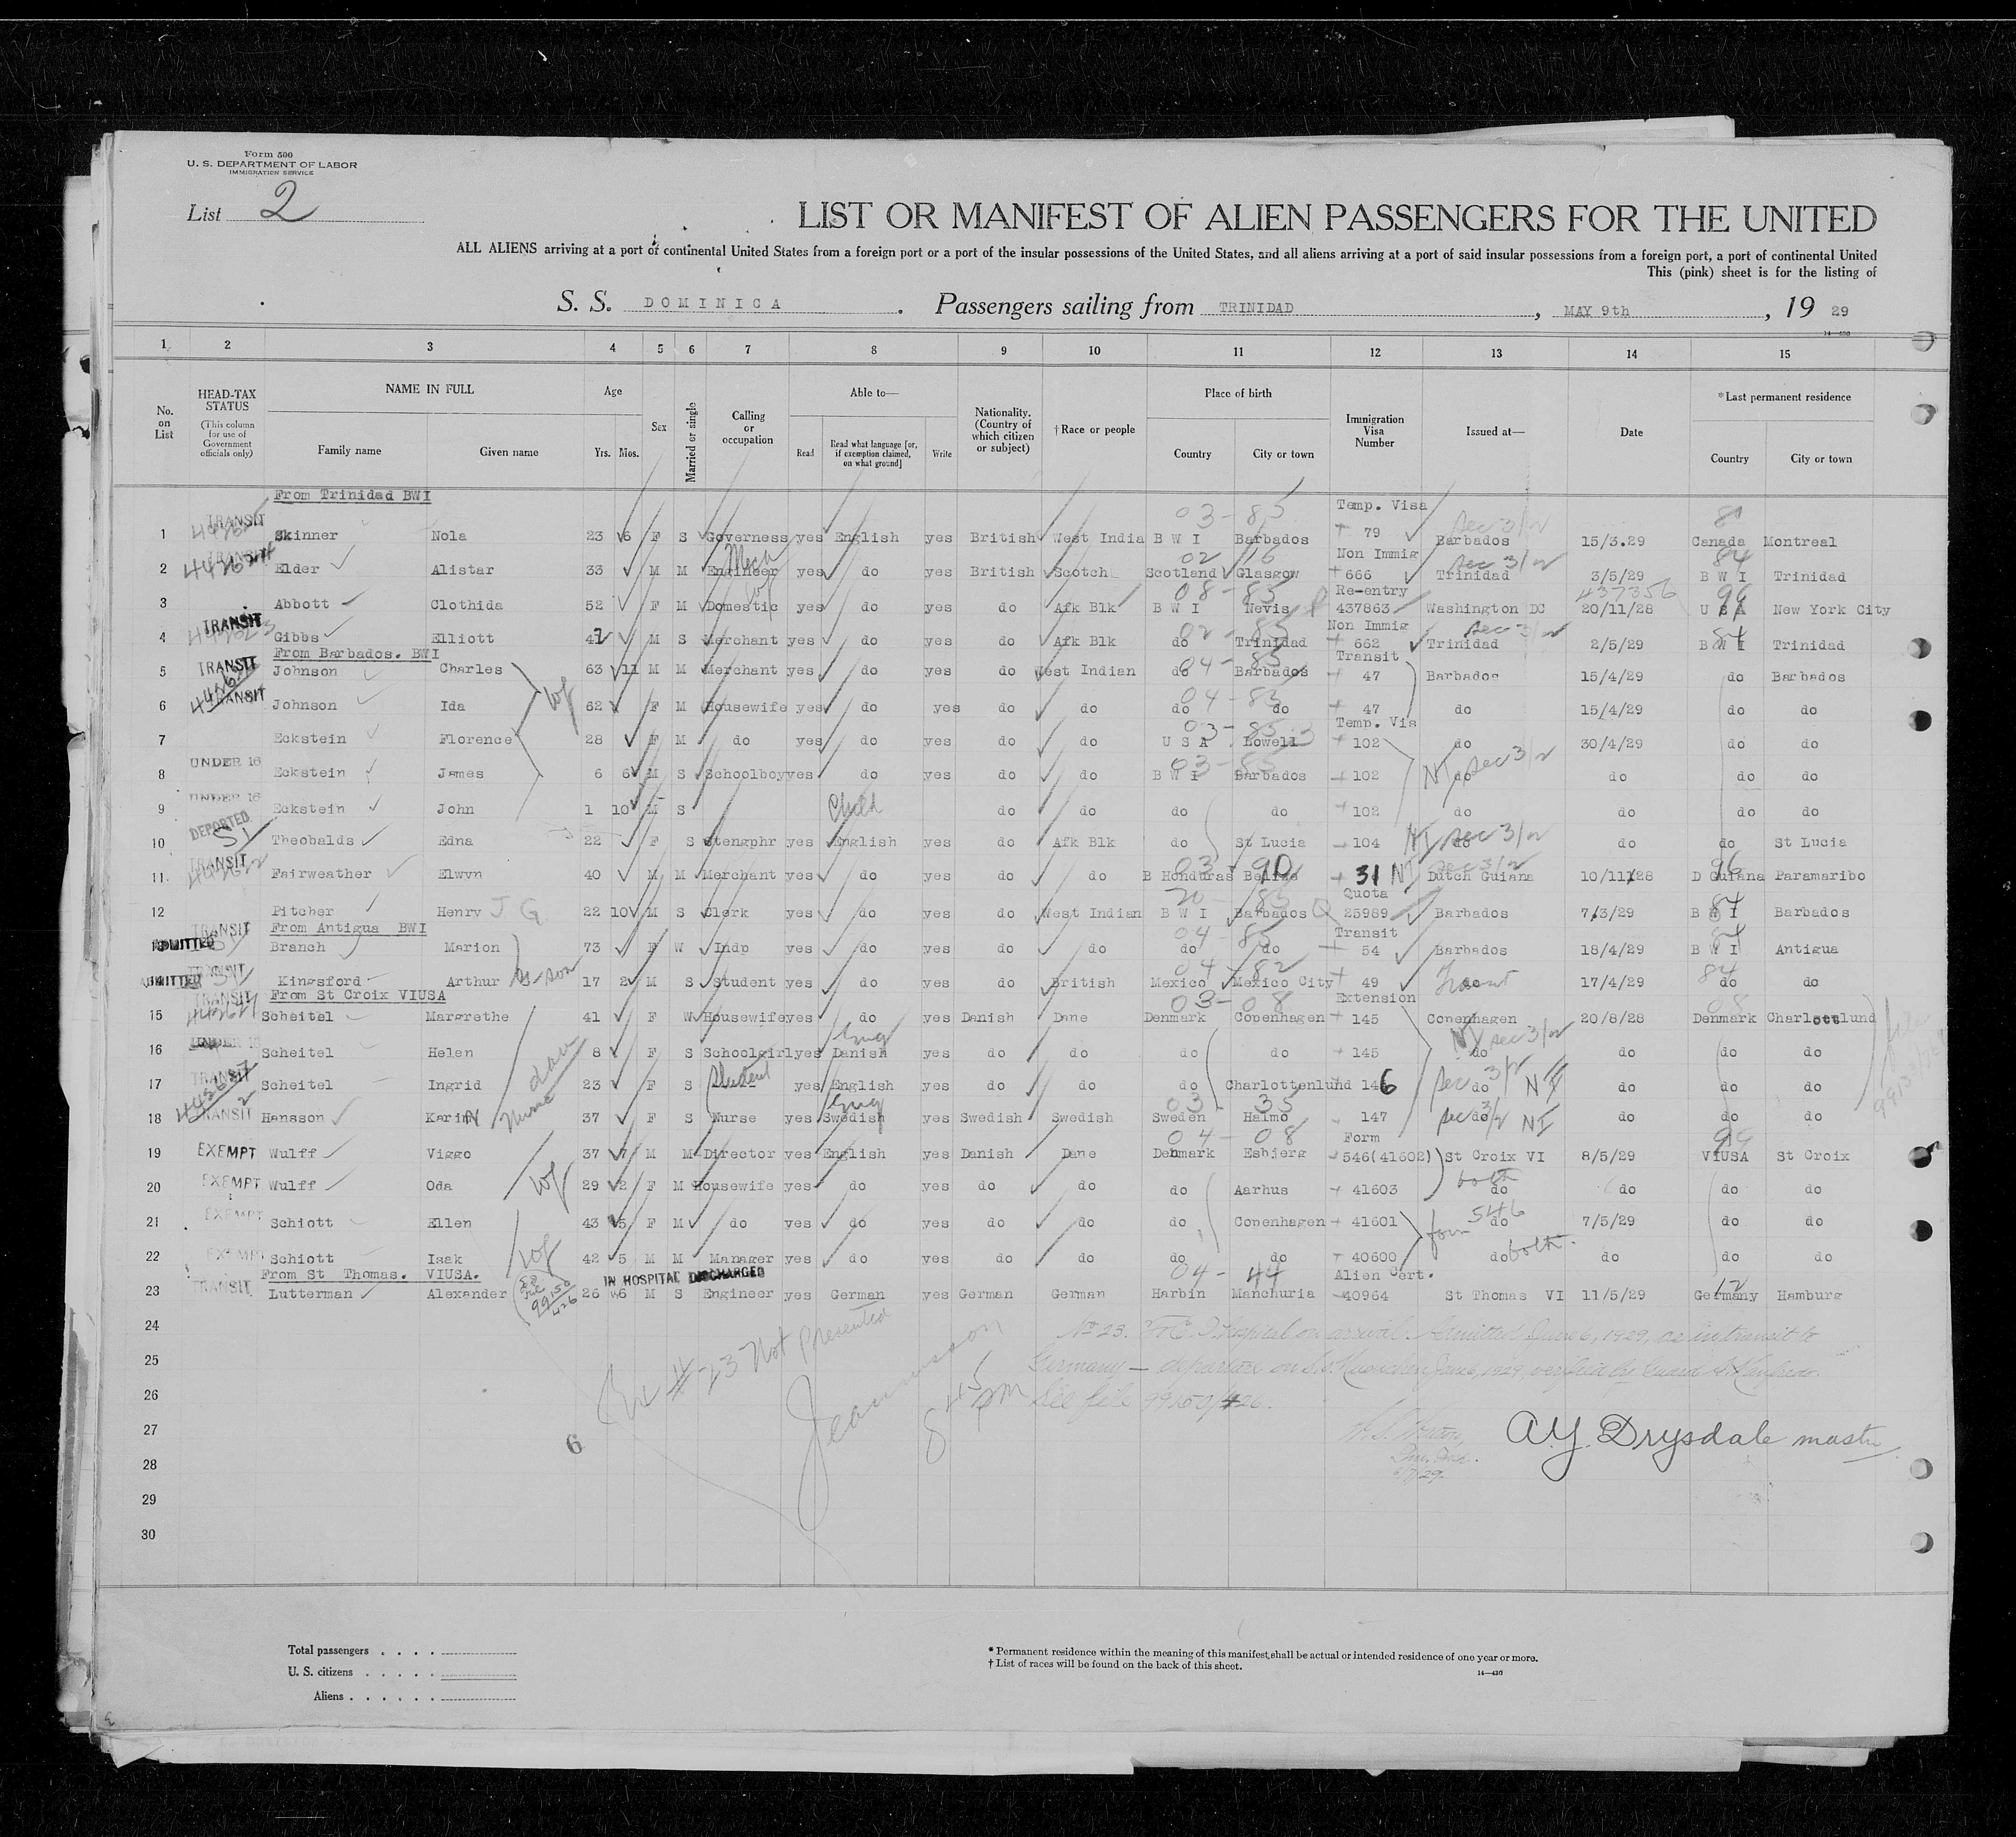 Form 500
U. S. DEPARTMENT OF LABOR
IMMIGRATION SERVICE
List 2
LIST OR MANIFEST OF ALIEN PASSENGERS FOR THE UNITED
ALL ALIENS arriving at a port of continental United States from a foreign port or a port of the insular possessions of the United States, and all aliens arriving at a port of said insular possessions from a foreign port, a port of continental United
This (pink) sheet is for the listing of
S. S. DOMINICA. Passengers sailing from TRINIDAD, MAY 9th, 19 29
14—430
1 2 3 4 5 6 7 8 9 10 11 12 13 14 15
No. on List
HEAD-TAX STATUS (This column for use of Government officials only)
NAME IN FULL Family name Given name
Age Yrs. Mos.
Sex
Married or single
Calling or occupation
Able to— Read Read what language [or, if exemption claimed, on what ground] Write
Nationality. (Country of which citizen or subject)
†Race or people
Place of birth Country City or town
Immigration Visa Number
Issued at—
Date
*Last permanent residence Country City or town
From Trinidad BWI
Temp. Visa
1 TRANSIT Skinner Nola 23 6 F S Governess yes English yes British West India B W I Barbados 03-85 79 Barbados sec 3/2 15/3.29 Canada Montreal
Non Immig
2 TRANSIT Elder Alistar 33 M M Engineer Mech yes do yes British Scotch Scotland Glasgow 02 16 666 Trinidad sec 3/2 3/5/29 B W I Trinidad 84
Re-entry 437356
3 Abbott Clothida 52 F M Domestic yes do yes do Afk Blk B W I Nevis 08-85 437863 Washington DC 20/11/28 U S A New York City
Non Immig
4 TRANSIT Gibbs Elliott 42 M S Merchant yes do yes do Afk Blk do Trinidad 02-85 662 Trinidad sec 3/2 2/5/29 B W I Trinidad 84
From Barbados. BWI
Transit
5 TRANSIT Johnson Charles 63 11 M M Merchant yes do yes do West Indian do Barbados 04-85 47 Barbados 15/4/29 do Barbados
wf
6 TRANSIT Johnson Ida 62 F M Housewife yes do yes do do do do 04-85 47 do 15/4/29 do do
Temp. Vis
7 Eckstein Florence 28 F M do yes do yes do do U S A Lowell 102 do 30/4/29 do do
8 UNDER 16 Eckstein James 6 6 M S Schoolboy yes do yes do do B W I Barbados 03-85 102 do NI sec 3/2 do do do
9 UNDER 16 Eckstein John 1 10 M S Child do do do do 102 do do do do
10 DEPORTED SI Theobalds Edna 22 F S Stengphr yes English yes do Afk Blk do St Lucia 104 do NI sec 3/2 do do St Lucia
11 TRANSIT Fairweather Elwyn 40 M M Merchant yes do yes do do B Honduras Belize 03 90 31 NI Dutch Guiana sec 3/2 10/11/28 D Guiana Paramaribo 96
Quota
12 Pitcher Henry J G. 22 10 M S Clerk yes do yes do West Indian B W I Barbados 20-85 25989 Barbados 7/3/29 B W I Barbados 84
From Antigua BWI
Transit
TRANSIT ADMITTED Branch Marion 73 F W Indp yes do yes do do do do 04-85 54 Barbados 18/4/29 B W I Antigua 84
TRANSIT ADMITTED Kingsford Arthur 17 2 M S Student yes do yes do British Mexico Mexico City 04-82 49 do 17/4/29 do do 84
From St Croix VIUSA
Extension
15 TRANSIT Scheitel Margrethe 41 F W Housewife yes do yes Danish Dane Denmark Copenhagen 03-08 145 Copenhagen 20/8/28 Denmark Charlottlund 08
16 UNDER 16 Scheitel Helen 8 F S Schoolgirl yes Danish Eng yes do do do do 145 do NI sec 3/2 do do do
17 TRANSIT Scheitel Ingrid 23 F S Student yes English yes do do do Charlottenlund 146 do sec 3/2 NI do do do
18 TRANSIT Hansson Karin Nurse 37 F S Nurse yes Swedish Eng yes Swedish Swedish Sweden Halmo 03 35 147 do sec 3/2 NI do do do
Form
19 EXEMPT Wulff Viggo 37 7 M M Director yes English yes Danish Dane Denmark Esbjerg 04-08 546(41602) St Croix VI 8/5/29 VIUSA St Croix
wf
20 EXEMPT Wulff Oda 29 2 F M Housewife yes do yes do do do Aarhus 41603 do both do do do
21 EXEMPT Schiott Ellen 43 5 F M do yes do yes do do do Copenhagen 41601 do form 546 7/5/29 do do
22 EXEMPT Schiott Isak wf 42 5 M M Manager yes do yes do do do do 40600 do both. do do do
From St Thomas. VIUSA.
IN HOSPITAL DISCHARGED
Alien Cert.
23 TRANSIT Lutterman Alexander 99150/426 26 6 M S Engineer yes German yes German German Harbin Manchuria 04-44 40964 St Thomas VI 11/5/29 Germany Hamburg 12
24
25
26
27
28
29
30
#23 Not Presented
845 pm
No 23. Hospital on arrival. Admitted June 6, 1929, as in transit to
Germany — departure on S.S. Muenchen June 6, 1929, verified by
See file 99150/426.
6
A.Y. Drysdale master
Total passengers
U. S. citizens
Aliens
* Permanent residence within the meaning of this manifest shall be actual or intended residence of one year or more.
† List of races will be found on the back of this sheet.
14—430